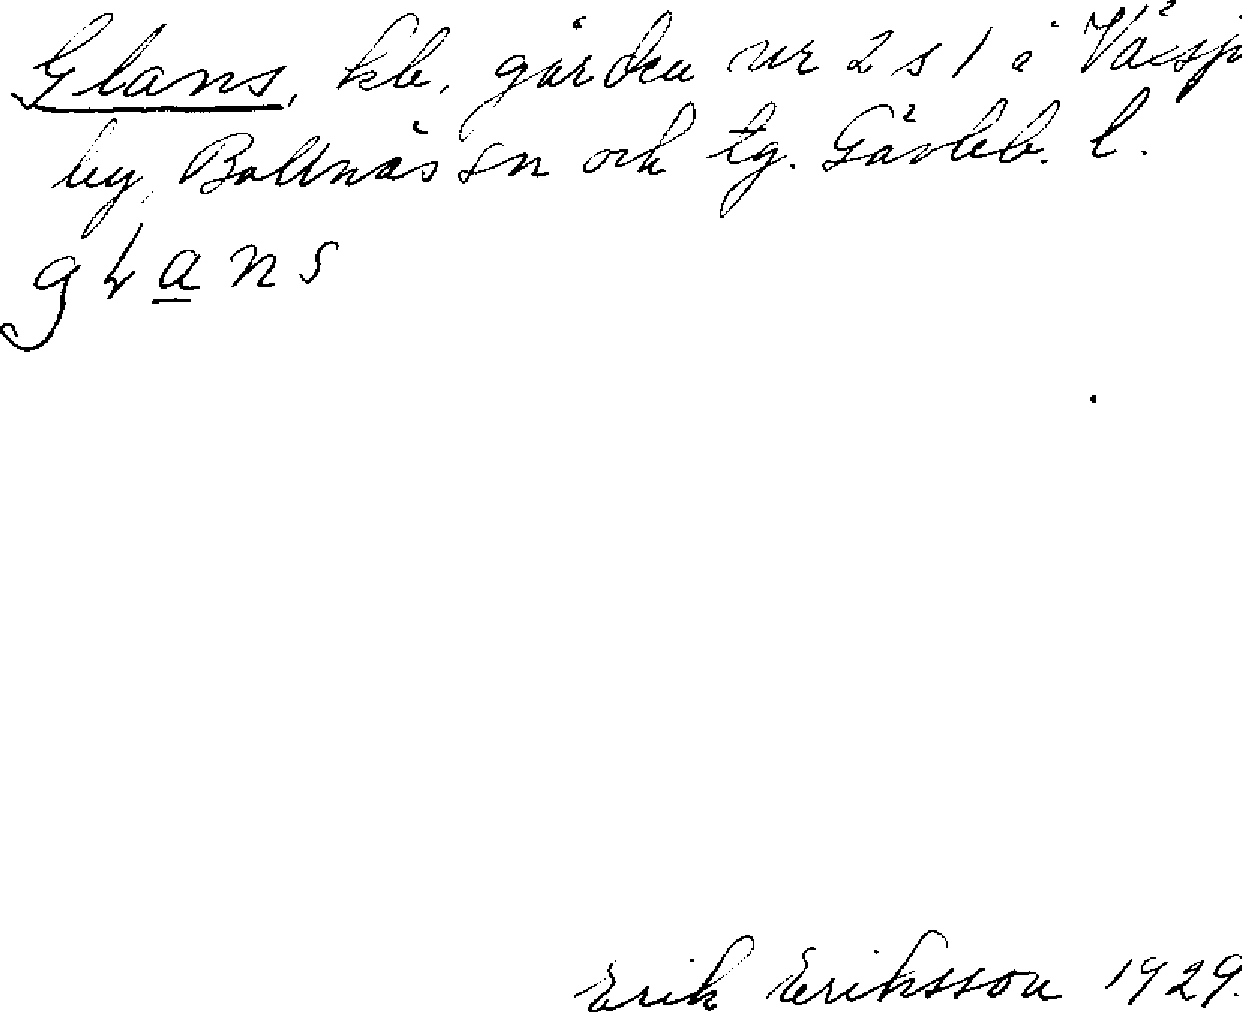 Glans, kb, gården nr 2 s 1 i Växsjö
by, Bollnäs sn och tg. Gävleb. l.
glans
Erik Eriksson 1929.